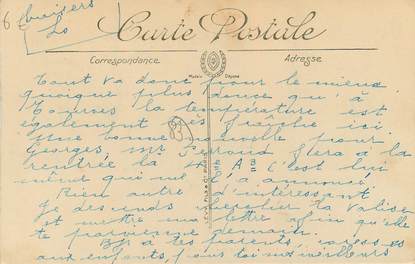 6
Carte Postale
Correspondance
Adresse
Modèle Déposé
Tout va donc pour le mieux
quoique plus douce qu'à
Tourves la température est
également très fraîche ici.
Une bonne nouvelle pour
Georges, Mr fera à la
rentrée la A C'est lui
même qui me l'a annoncé
Rien autre d'intéressant
Je descends chercher la valise
et mettre ma lettre afin qu'elle
te parvienne demain.
à tes parents, caresses
aux enfants, pour toi meilleurs
83